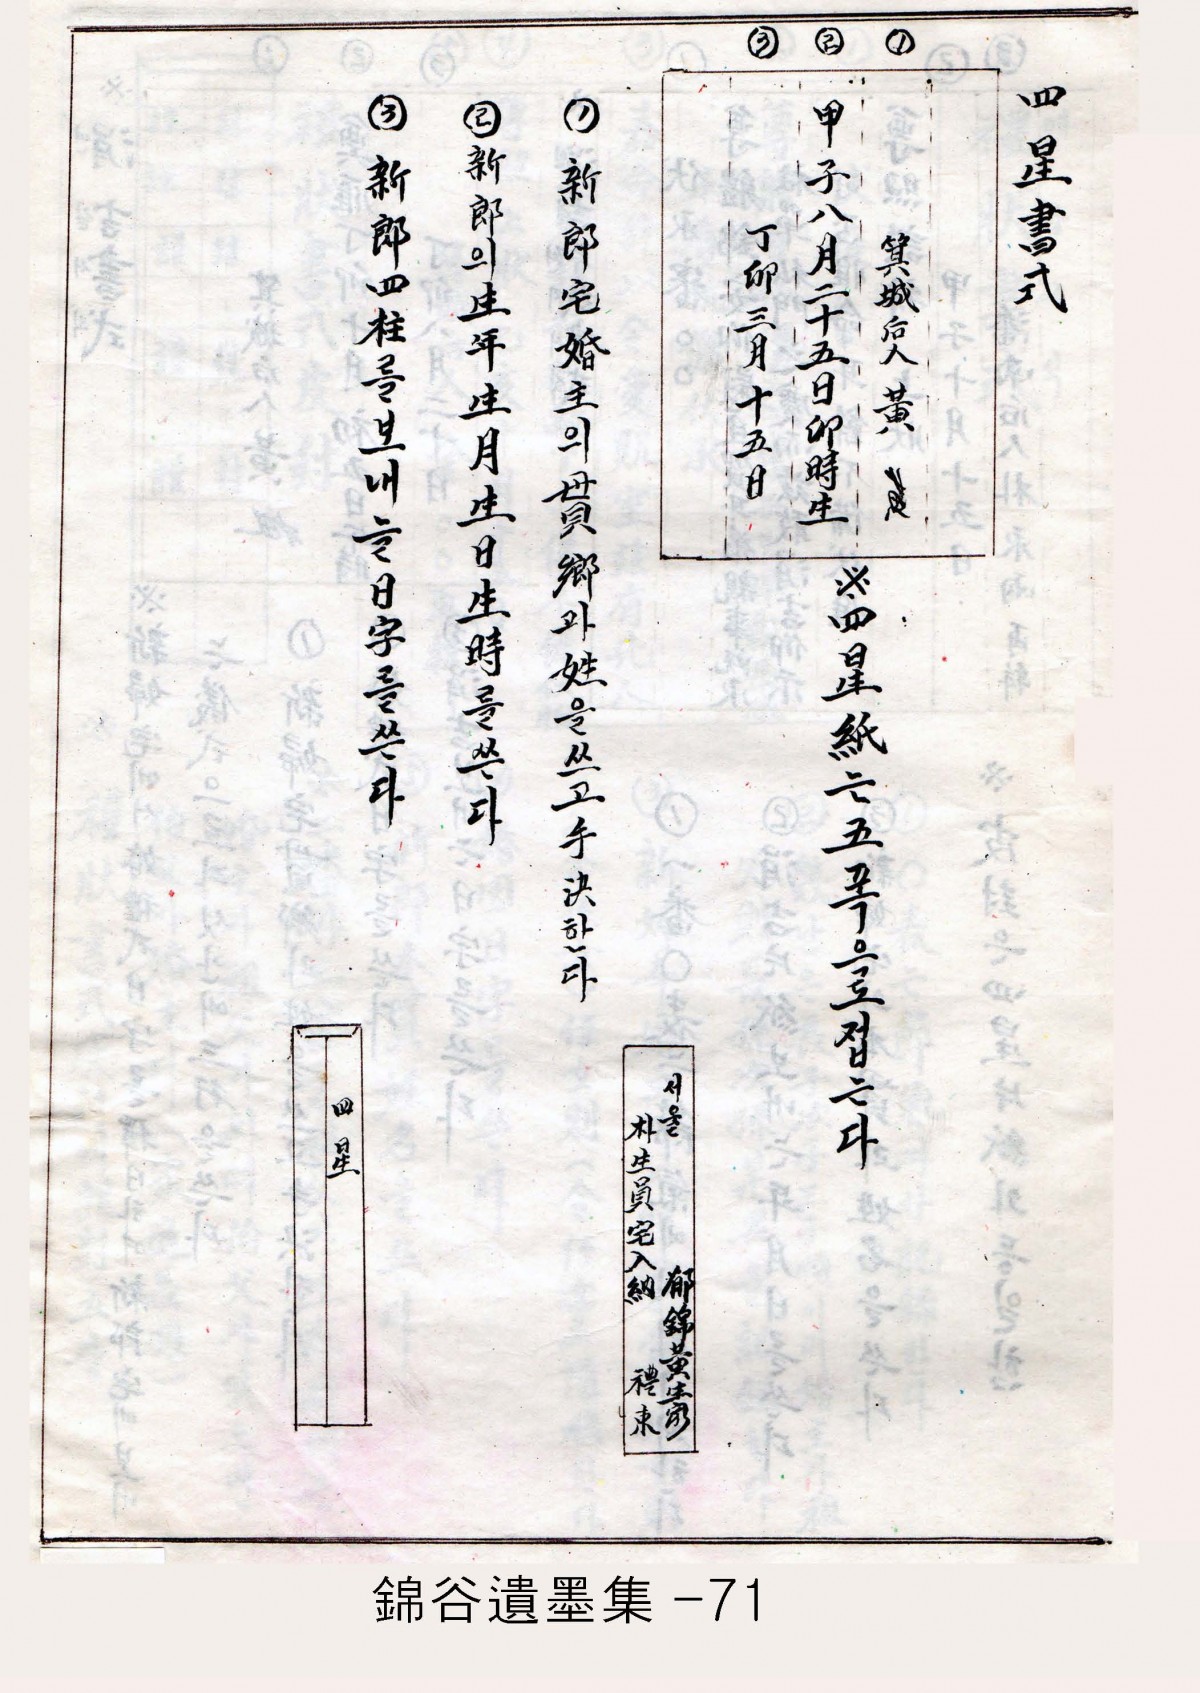 四星書式
① ② ③
箕城后人 黃
甲子八月二十五日卯時生
丁卯三月十五日
※四星紙는五폭으로접는다
① 新郎宅婚主의貫鄕과姓을쓰고手決한다
②新郎의生年生月生日生時를쓴다
③ 新郎四柱를보내는日字를쓴다
서울
朴生員宅入納
郁錦黃生家
禮束
四星
錦谷遺墨集 -71